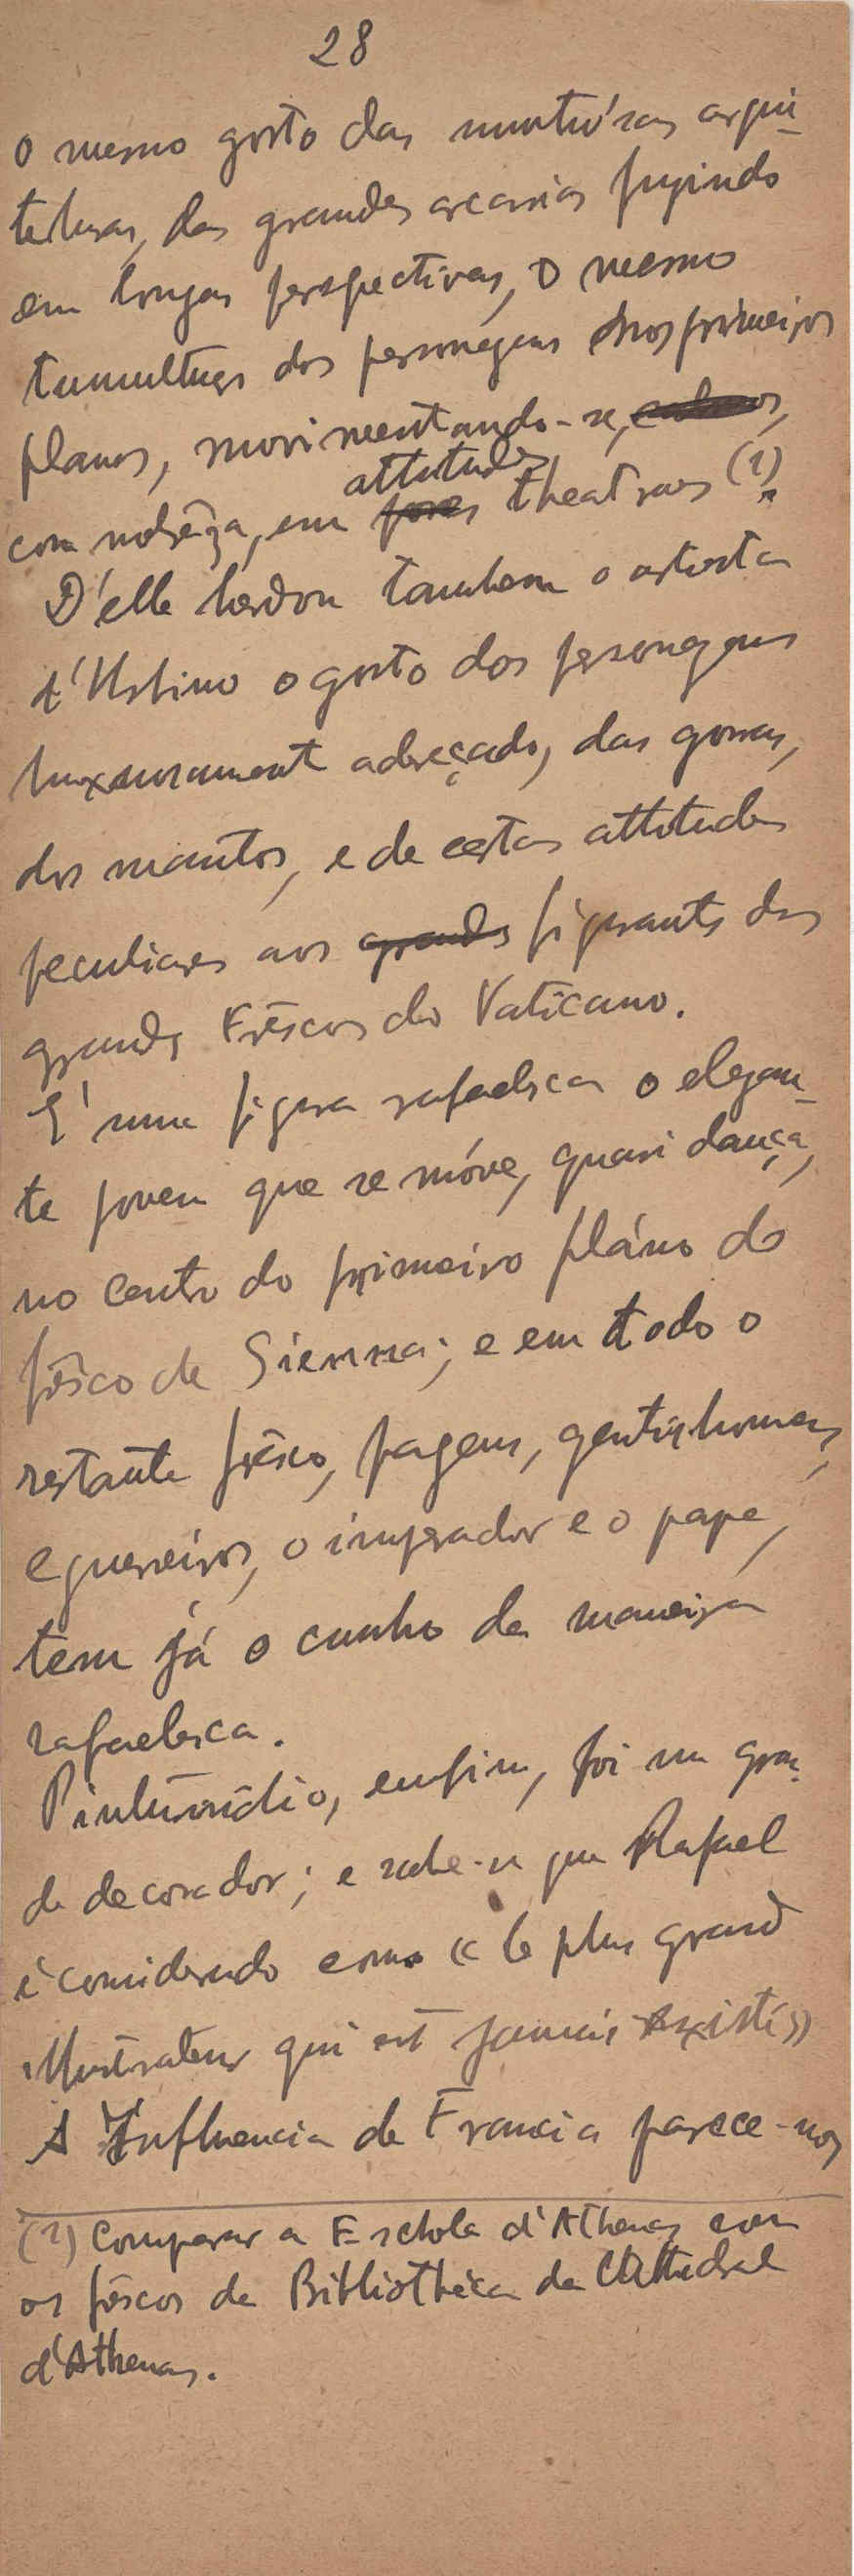 28
o mesmo gosto das sumtuósas arqui-
teturas, das grandes arcarias fugindo
em longas perspectivas, o mesmo
tumultuar dos personagens nos primeiros
planos, movimentando-se,
com nobrêza, em attitudes theatraes (1).
D'elle herdou tambem o artista
d'Urbino o gosto dos personagens
luxuosament adereçados, das gorras,
dos mantos, e de certas attitudes
peculiares aos grandes figurants dos
grands Frêscos do Vaticano.
E' uma figura rafaelesca o elegan-
te joven que se móve, quasi dança,
no centro do primeiro pláno do
frêsco de Sienna; e em todo o
restante frêsco, pagens, gentishomens,
e guerreiros, o imperador e o papa,
tem já o cunho da maneira
rafaelesca.
Pinturíchio, emfim, foi um gran-
de decorador; e sabe-se que Rafael
é considerado como «le plus grand
illustrateur qui ait jamais existé»
A Influencia de Francia parece-nos
(1) Comparar a Eschola d'Athenas com
os frêscos da Bibliothéca da Cathedral
d'Athenas.